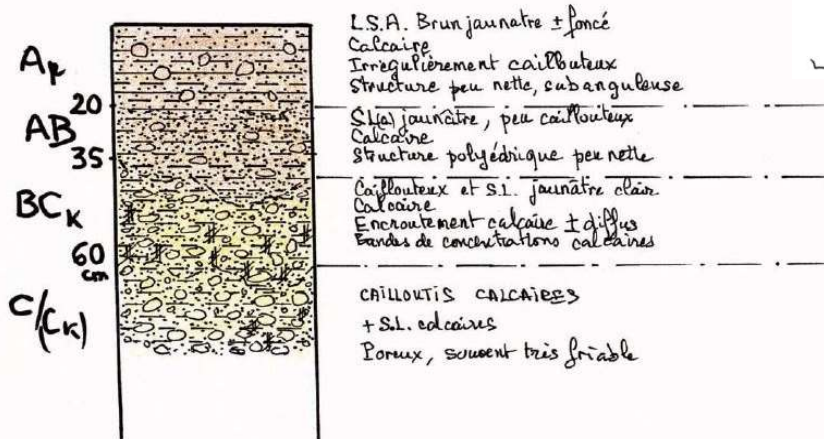 Ap
20
AB
35
BCk
60
cm
C/(Ck)
L.S.A. Brun jaunatre ± foncé
Calcaire
Irregulièrement caillouteux
Structure peu nette, subanguleuse
S.L(a) jaunâtre, peu caillouteux
Calcaire
Structure polyédrique peu nette
Caillouteux et S.L. jaunâtre clair
Calcaire
Encroutement calcaire ± diffus
Bandes de concentrations calcaires
CAILLOUTIS CALCAIRES
+ S.L. calcaires
Poreux, souvent très friable